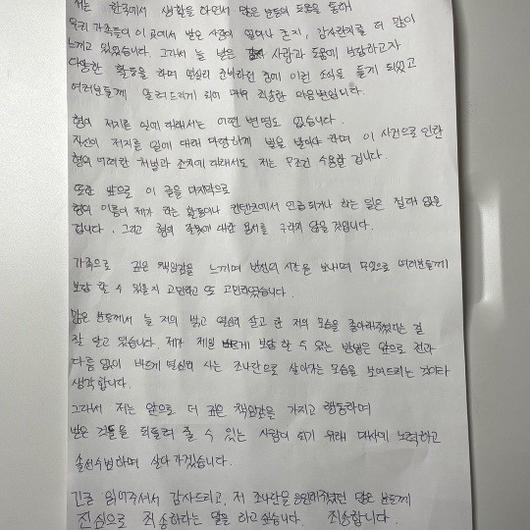 저는 한국에서 생활을 하면서 많은 분들의 도움을 통해
우리 가족들이 이 곳에서 받은 사랑이 얼마나 큰지, 감사한지를 더 많이
느끼고 있었습니다. 그래서 늘 받은 사랑과 도움에 보답하고자
다양한 활동을 하며 열심히 준비하던 중에 이런 소식을 듣게 되었고
여러분들께 알려드리게 되어 매우 죄송한 마음뿐입니다.
형이 저지른 일에 대해서는 어떤 변명도 없습니다.
자신이 저지른 일에 대해 마땅하게 벌을 받아야 하며 이 사건으로 인한
형의 어떠한 처벌과 조치에 대해서도 저는 무조건 수용할 겁니다.
또한 앞으로 이 글을 마지막으로
형의 이름이 제가 하는 활동이나 컨텐츠에서 언급되거나 하는 일은 절대 없을
겁니다. 그리고 형의 잘못에 대한 용서를 구하지 않을 것입니다.
가족으로 깊은 책임감을 느끼며 반성의 시간을 보내며 무엇으로 여러분들께
보답 할 수 있을지 고민하고 또 고민하였습니다.
많은 분들께서 늘 저의 밝고 열심히 살고 한 저의 모습을 좋아해주셨다는 걸
잘 알고 있습니다. 제가 제일 바르게 보답 할 수 있는 방법은 앞으로 전과
다름 없이 바르게 열심히 사는 조나단으로 살아가는 모습을 보여드리는 것이라
생각합니다.
그래서 저는 앞으로 더 깊은 책임감을 가지고 행동하며
받은 것들을 되돌려 줄 수 있는 사람이 되기 위해 대사이 노력하고
솔선수범하며 살아가겠습니다.
긴글 읽어주셔서 감사드리고, 저 조나단을 응원해주셨던 많은 분들께
진심으로 죄송하다는 말을 하고 싶습니다. 죄송합니다.